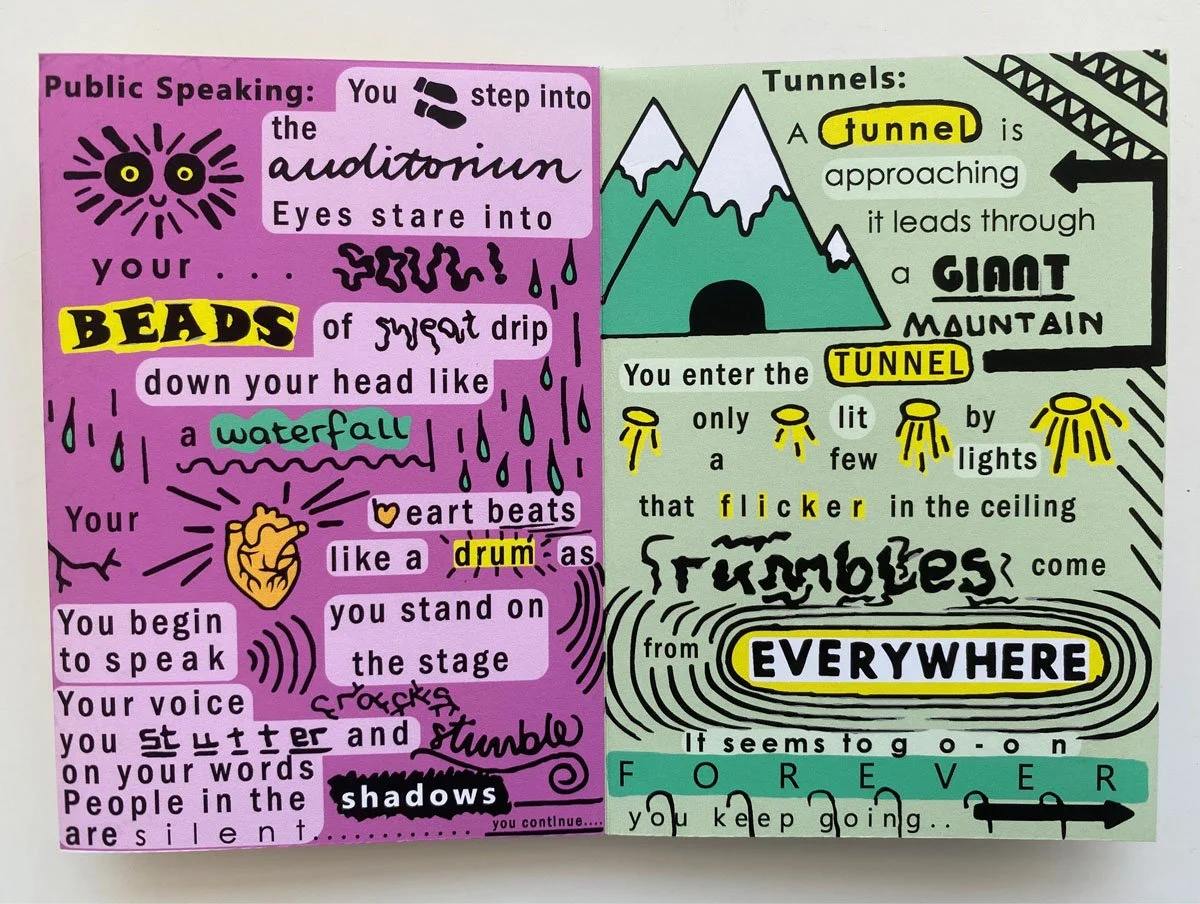 Public Speaking: You step into
the
auditorium
Eyes stare into
your . . . SOUL!
BEADS of sweat drip
down your head like
a waterfall
Your eart beats
like a drum as
you stand on
the stage
You begin
to speak
Your voice cracks
you stutter and stumble
on your words
People in the shadows
are silent............
you continue....
Tunnels:
A tunnel is
approaching
it leads through
a GIANT
MOUNTAIN
You enter the TUNNEL
only lit by
a few lights
that flicker in the ceiling
rumbles come
from EVERYWHERE
It seems to g o - o n
F O R E V E R
you keep going..